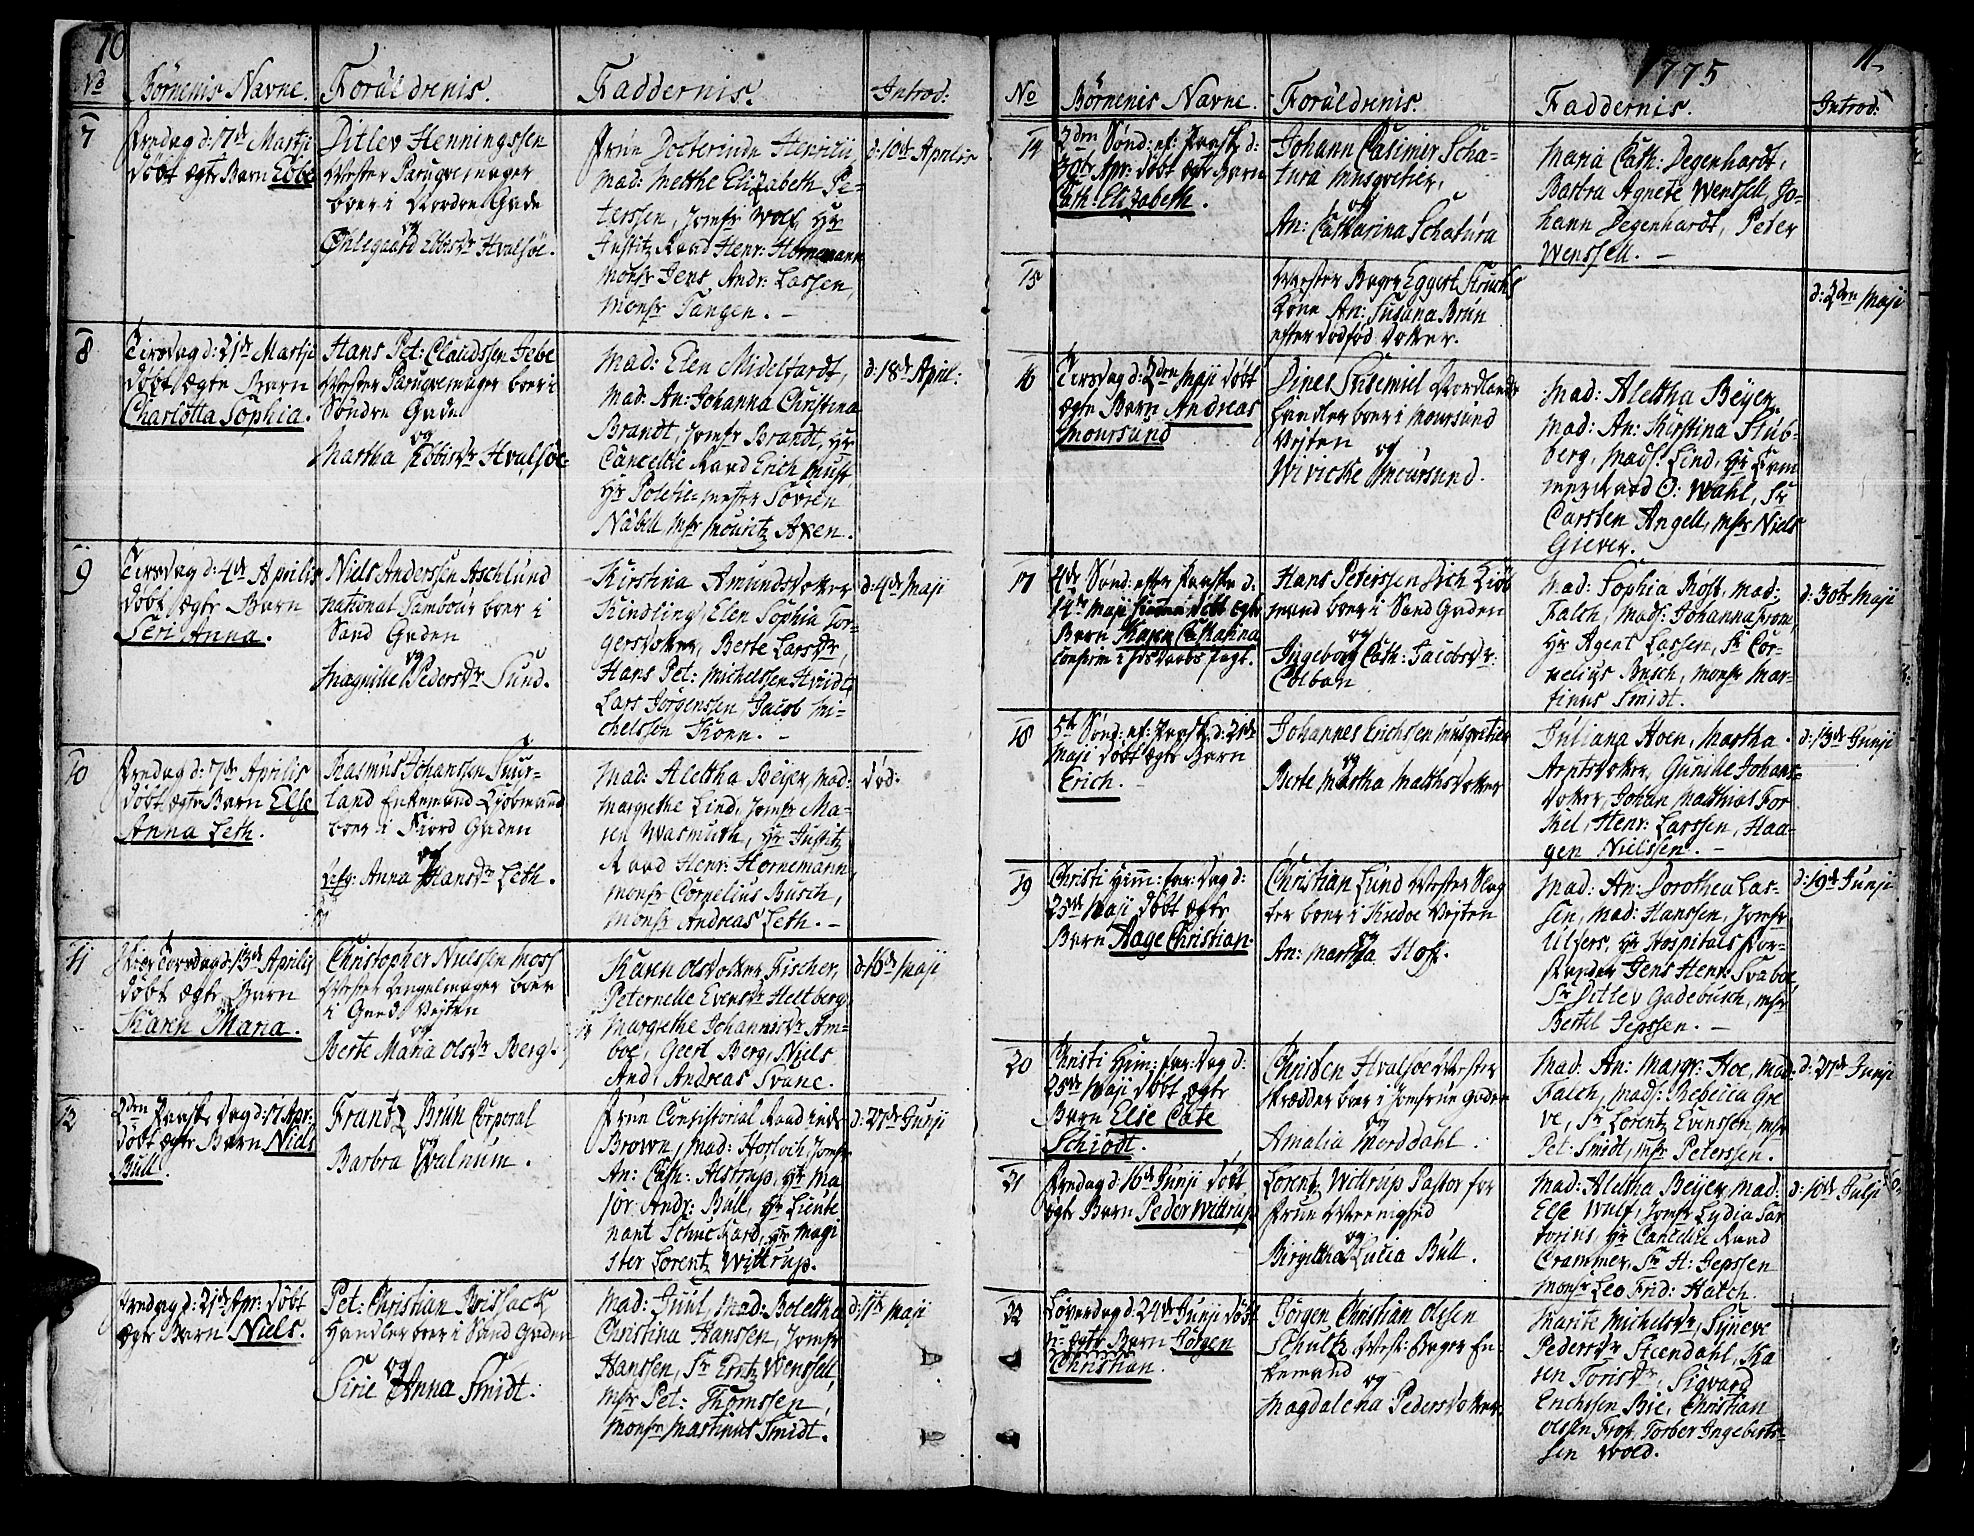 10
No Børnenis Navne. Forældrenis. Faddernis. Introd:
7
Fredag d: 17de Martji
døbt ægte Barn Ebbe
Ditlev Henningssen
Mester Paruqvemager
boer i Nordre Gade
og
Øhlegaard Ebbisdr Hvalsøe.
Frue Doctorinde Henrici
Mad: Metthe Elizabeth Pe-
terssen, Jomfr Wolf, Hr
Justitz Raad Henr: Hornemann
Monsr Jens Andr: Lassen,
Monsr Tangen. -
d: 10de Aprilis
8
Tirsdag d: 21de Martji
døbt ægte Barn
Charlotta Sophia.
Hans Pet: Claudssen
Mester Paruqvemager boer i
Søndre Gade
og
Martha Ebbisdr Hvalsøe
Mad: Elen Midelfardt,
Mad: An: Johanna Christina
Brandt, Jomfr Brandt, Hr
Cancellie Raad Erich Must,
Hr Politiemester Søvren
Nabell Msr Mouritz Axen.
d: 18de April:
9
Tirsdag d: 4de Aprilis
døbt ægte Barn
Seri Anna.
Niels Anderssen Aschlund
national Tambour boer i
Sand Gaden
og
Magnilie Pedersdr Sund.
Kirstina Amundsdotter
Kindling, Elen Sophia Tor-
gersdotter, Berte Larsdr,
Hans Pet: Michelssen Hvidt
Lars Jørgenssen Jacob Mi-
chelssøn Konn. -
d: 4de Maji
10
Fredag d: 7de Aprilis
døbt ægte Barn Else
Anna Leth.
Rasmus Johanssen
land Enkemand Kiøbmand
boer i Fiord Gaden
og
Anna Hansdr Leth.
Mad: Alettha Beijer, Mad:
Margrethe Lind, Jomfr Ma-
ren Wasmuth, Hr Justitz
Raad Henr: Hornemann,
Monsr Cornelius Busch,
Monsr Andreas Leth. -
død.
11
Skier Torsdag d: 13de Aprilis
døbt ægte Barn
Karen Maria.
Christopher Nielssen Moss
Mester boer
i Veiten
og
Berte Maria Olsdr Berg.
Karen Olsdotter Fischer,
Peternelle Evensdr Heltberg
Margrethe Johannisdr Am-
boe, Geert Berg, Niels
And, Andreas Svane.
d: 16de Maji
12
2den Paaske Dag d: 17 Apr:
døbt ægte Barn Niels
Bull.
Frantz Brun Corporal
og
Barbra Walnum.
Frue Consistorial Raad inde
Brown, Mad: Jomfr
An: Cath: Alstrup, Hr Ma
jor Andr: Bull, Hr Lieute
nant Schuckard, Hr Magi
ster Lorentz Wittrup.
d: 27de Junji
Fredag d: 21de Apr: døbt
ægte Barn Niels.
Pet: Christian Brissack
Handler boer i Sand Gaden
og
Sirie Anna Smidt.
Mad: Juul, Mad: Bolettha
Christina Hanssen, Jomfr
Hanssen, Sr Wenssell,
Msr Pet: Thomssen,
Monsr Martinus Smidt.
d: 11te Maji
1775 11
No Børnenis Navne. Forældrenis. Faddernis. Introd:
14
2den Sønd: ef: Paaske d:
30te Apr: døbt ægte Barn
Cath: Elizabeth.
Johann Casimir Scha-
tura Musqvetier,
og
An: Catharina Schatura
Maria Cath: Degenhardt,
Barbra Agnete Wenssell, Jo-
hann Degenhardt, Peder
Wenssell. -
15
Mester Bager Eggert
Kone An: Susana Brun
efter dødfød dotter.
d: 2den Maji
16
Tirsdag d: 2den Maji døbt
ægte Barn Andreas
Moursund
Dines Nordlands
handler boer i Moursund
Vejten
og
Wiviche Moursund.
Mad: Alettha Beijer,
Mad: An: Kirstina Stub-
berg, Mads: Lind, Hr Kam
mer Raad O: Wahl, Sr
Carsten Angell, Msr Niels
Giever.
17
4de Sønd: efter Paaske d:
14de Maji døbt ægte
Barn Karen Catharina
Hans Peterssen Kiøb
mand boer i Sand Gaden
og
Ingeborg Cath: Jacobsdr:
Colban
Mad: Sophia Rost, Mad:
Falch, Mads: Johanna From,
Hr Agent Lassen, Sr Cor-
nelius Busch, Monsr Mar-
tinus Smidt.
d: 30te Maji
18
5te Sønd: ef: Paask: d: 21de
Maji døbt ægte Barn
Erich.
Johannes Erichsen Musqvetier
og
Berte Martha Mathisdotter
Juliana Hoen, Martha
Arntsdotter, Gunille Johans-
dotter, Johan Matthias Tor-
kel, Henr: Larssen, Haa-
gen Nielssen. -
d: 13de Junji
19
Christi Him: far: Dag d:
25de Maji døbt ægte
Barn Aage Christian
Christian Lund Mester Slag
ter boer i Vejten
og
An: Martha Hoff.
Mad: An: Dorothea Las-
sen, Mad: Hanssen, Jomfr
Ulfers, Hr Hospitals For-
stander Jens Henr: Svaboe,
Sr Ditlev Gadebusch, Msr
Bertel Jepssen. -
d: 19de Junji
20
Christi Him: far: Dag d:
25de Maji døbt ægte
Barn Else Cate
Schiødt.
Christen Hvalsøe Mester
Skrædder boer i Jomfrue Gaden
og
Amalia Morddahl.
Mad: An: Margr: Hoe, Mad:
Falch, Mads: Rebecca Gre
ve, Sr Lorentz Evenssen, Msr
Pet: Smidt, Msr Peterssen.
d: 27de Junji
21
Fredag d: 16de Junji døbt
ægte Barn Peder Wittrup
Lorentz Wittrup Pastor for
Frue Meenighed
og
Birgitha Lucia Bull.
Mad: Alettha Beijer, Mad:
Else Wulf, Jomfr Lydia Sar
torius, Hr Cancelie Raad
Crammer, Sr H: Jepssen
Monsr Leo Frid: Hatch.
d: 10de Julji
22
Løverdag d: 24de Junji døbt
u-ægte Barn Jørgen
Christian.
Jørgen Christian Olssen
Schultz Mest: Bager En
kemand
og
Magdalena Pedersdotter.
Marite Michelsdr, Syneve
Pedersdr Steendahl, Ka
ren Torisdr, Sigvard
Erichssen Bie, Christian
Olssen From, Torber Ingebrets-
sen Wold.